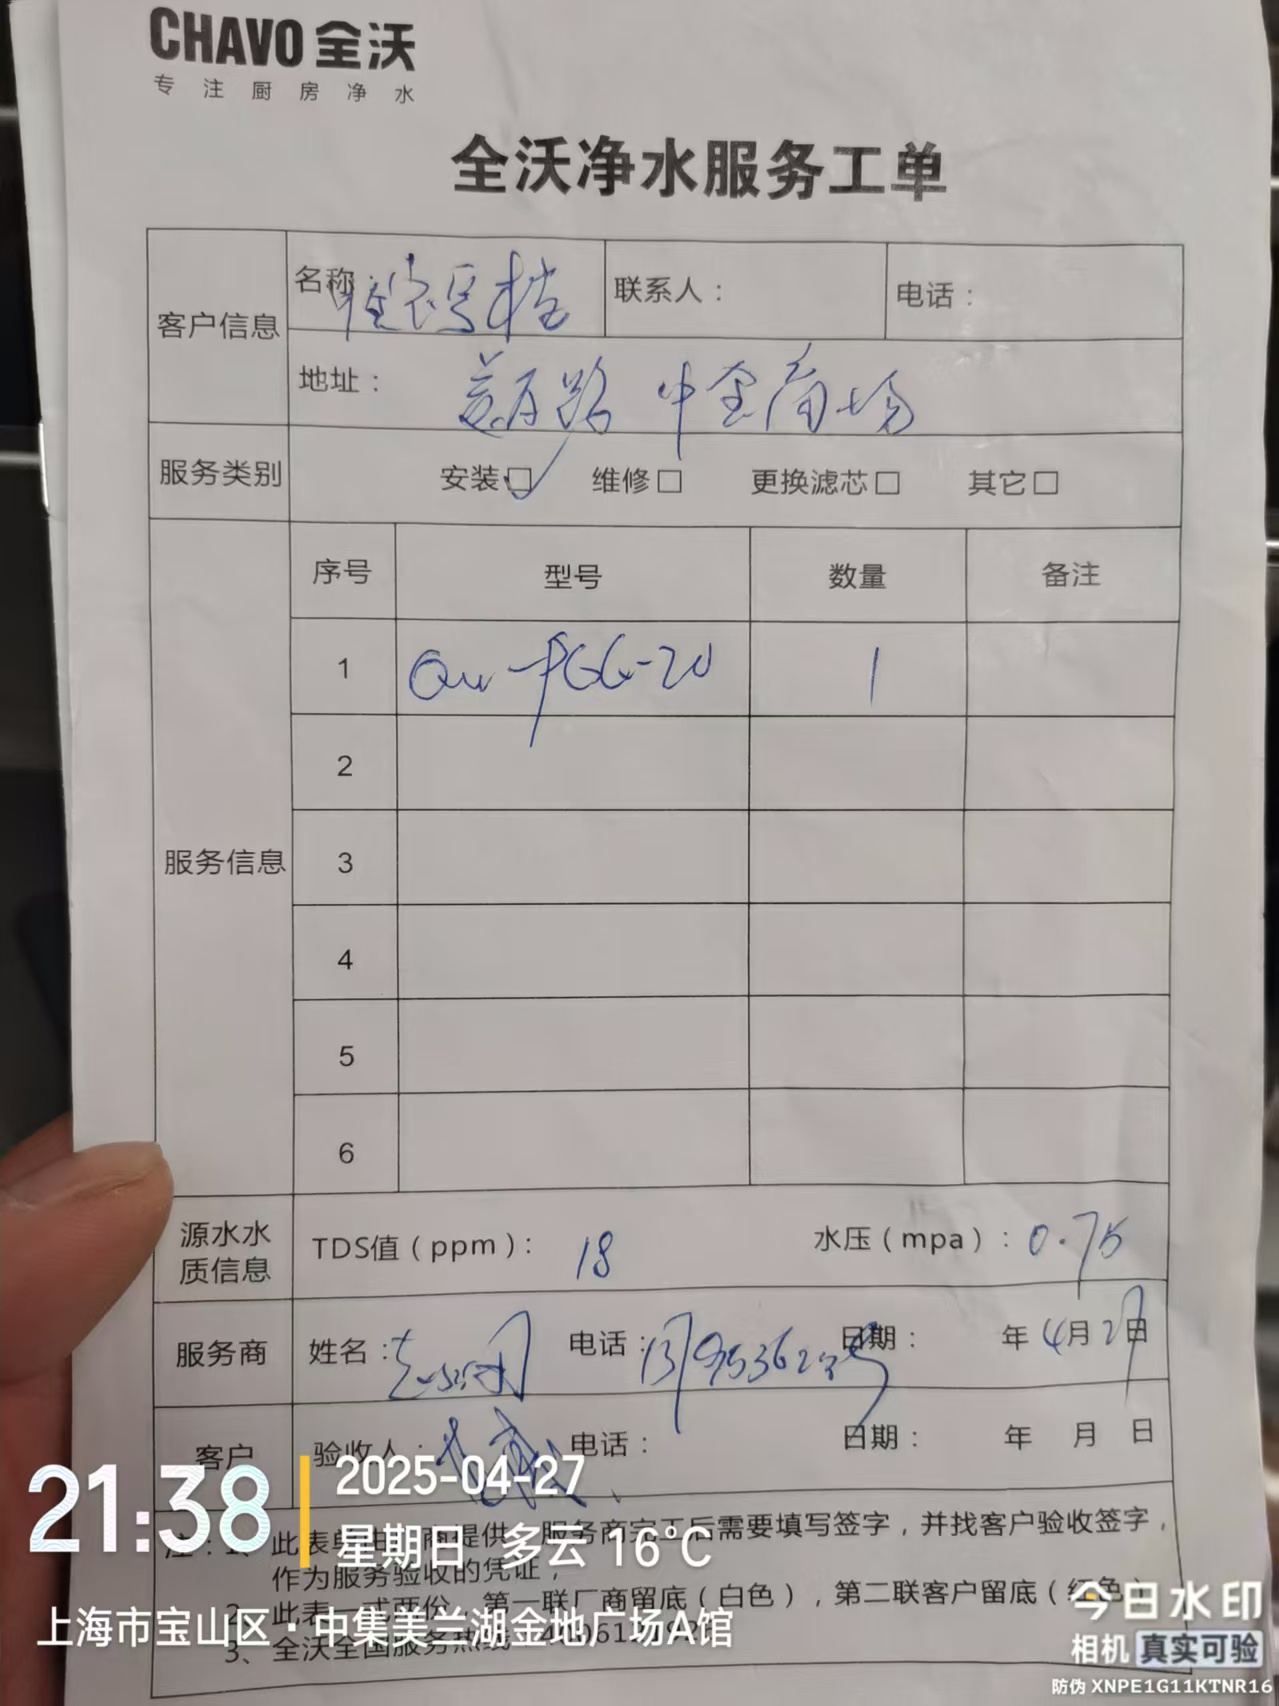 CHAVO 全沃
专注厨房净水
全沃净水服务工单
客户信息
名称：
联系人：
电话：
地址： 路 中金商场
服务类别 安装☑ 维修□ 更换滤芯□ 其它□
服务信息
序号 型号 数量 备注
1 1
2
3
4
5
6
源水水质信息 TDS值（ppm）： 18 水压（mpa）：0.75
服务商 姓名： 电话： 日期： 年 4月27日
客户 验收人： 电话： 日期： 年 月 日
注：1、此表单由 商提供，服务商完工后需要填写签字，并找客户验收签字，
作为服务验收的凭证；
2、此表一式两份，第一联厂商留底（白色），第二联客户留底（红色）
3、全沃全国服务热线
21:38
2025-04-27
星期日 多云 16℃
上海市宝山区·中集美兰湖金地广场A馆
今日水印
相机 真实可验
防伪 XNPE1G11KTNR16